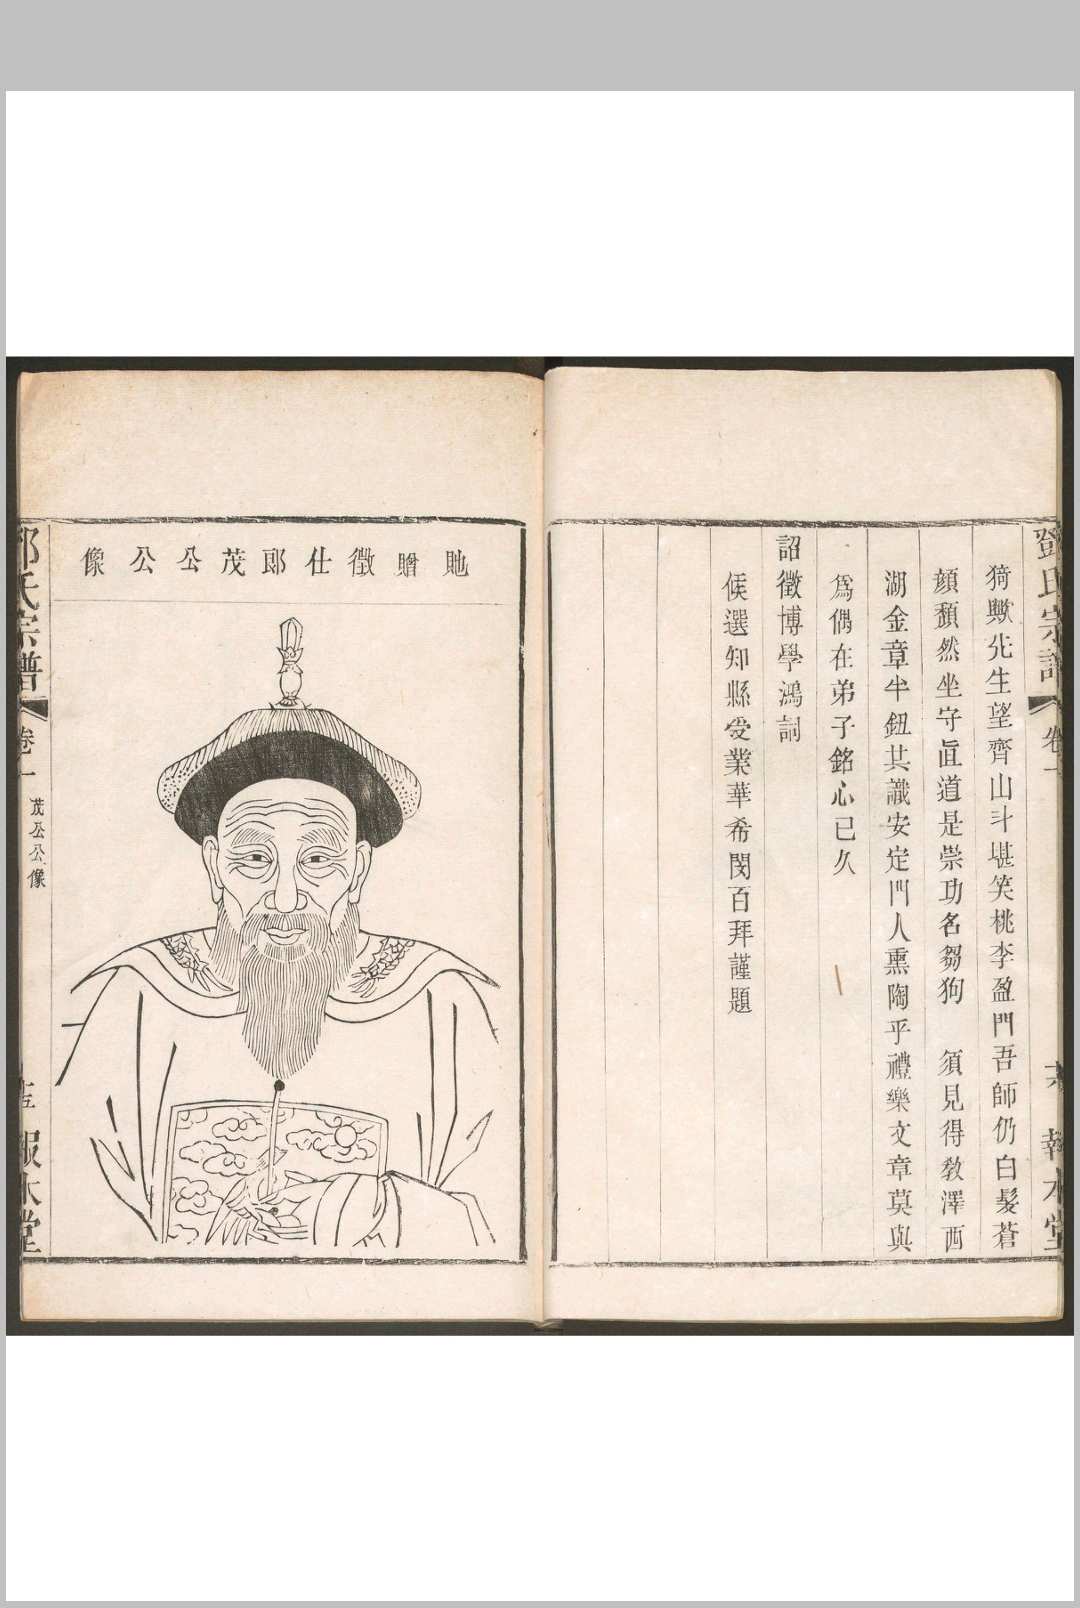 鄧氏宗譜
卷一
六
報本堂
猗歟先生望齊山斗堪笑桃李盈門吾師仍白髮蒼
顔頽然坐守眞道是崇功名芻狗　須見得敎澤西
湖金章半鈕共識安定門人熏陶乎禮樂文章莫與
爲偶在弟子銘心已久
詔徵博學鴻詞
候選知縣受業華希閔百拜謹題
貤贈徵仕郎茂公公像
鄧氏宗譜
卷一
茂公公像
報本堂